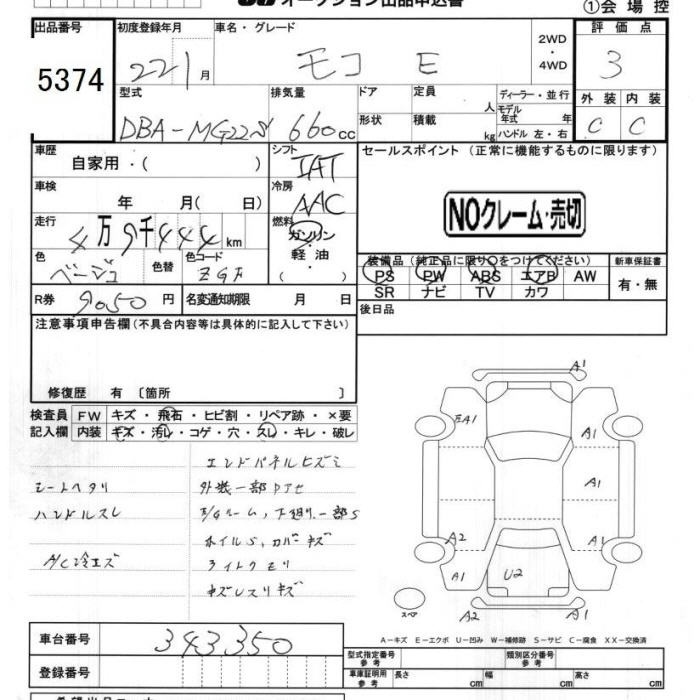 オークション出品申込書
①会場控
出品番号 初度登録年月 車名・グレード 評価点
5374 22 1月 モコ E 2WD・4WD 3
型式 排気量 ドア 定員 人 ディーラー・並行 外装 内装
DBA-MG22S 660cc 形状 積載 kg モデル年式 年 ハンドル 左・右 C C
車歴 シフト セールスポイント (正常に機能するものに限ります)
自家用・( ) IAT
車検 冷房
年 月( 日) AAC NOクレーム・売切
走行 燃料
4万9千444km ガソリン・軽油・( )
色 色替 色コード 装備品 (純正品に限り○をつけてください) 新車保証書
ベージュ ZGF PS PW ABS エアB AW 有・無
SR ナビ TV カワ
R券 9050円 名変通知期限 月 日 後日品
注意事項申告欄(不具合内容等は具体的に記入して下さい)
修復歴 有 〔箇所 〕
検査員 FW キズ・飛石・ヒビ割・リペア跡・×要
記入欄 内装 キズ・汚レ・コゲ・穴・スレ・キレ・破レ
エンドパネルヒズミ
シートヘタリ 外装一部Pアセ
ハンドルスレ E/Gルーム,下廻り一部S
ホイルS,カバーキズ
A/C冷エズ ライトクモリ
キズレスリキズ
A1
A1
A1
A1
A2
A1
U2
A1
A2
スペア
A-キズ E-エクボ U-凹み W-補修跡 S-サビ C-腐食 XX-交換済
車台番号 343350
型式指定番号 参考 類別区分番号 参考
登録番号
車庫証明用 参考 長さ cm 幅 cm 高さ cm